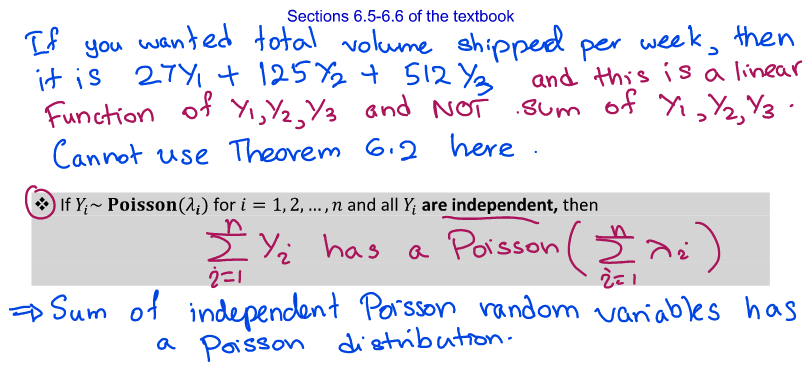 Sections 6.5-6.6 of the textbook
If you wanted total volume shipped per week, then
it is 27Y₁ + 125Y₂ + 512Y₃ and this is a linear
Function of Y₁,Y₂,Y₃ and NOT sum of Y₁,Y₂,Y₃.
Cannot use Theorem 6.2 here.
❖ If Yᵢ~ Poisson(λᵢ) for i = 1, 2, …, n and all Yᵢ are independent, then
∑ⁿᵢ₌₁ Yᵢ has a Poisson(∑ⁿᵢ₌₁ λᵢ)
⇒ Sum of independent Poisson random variables has
a Poisson distribution.